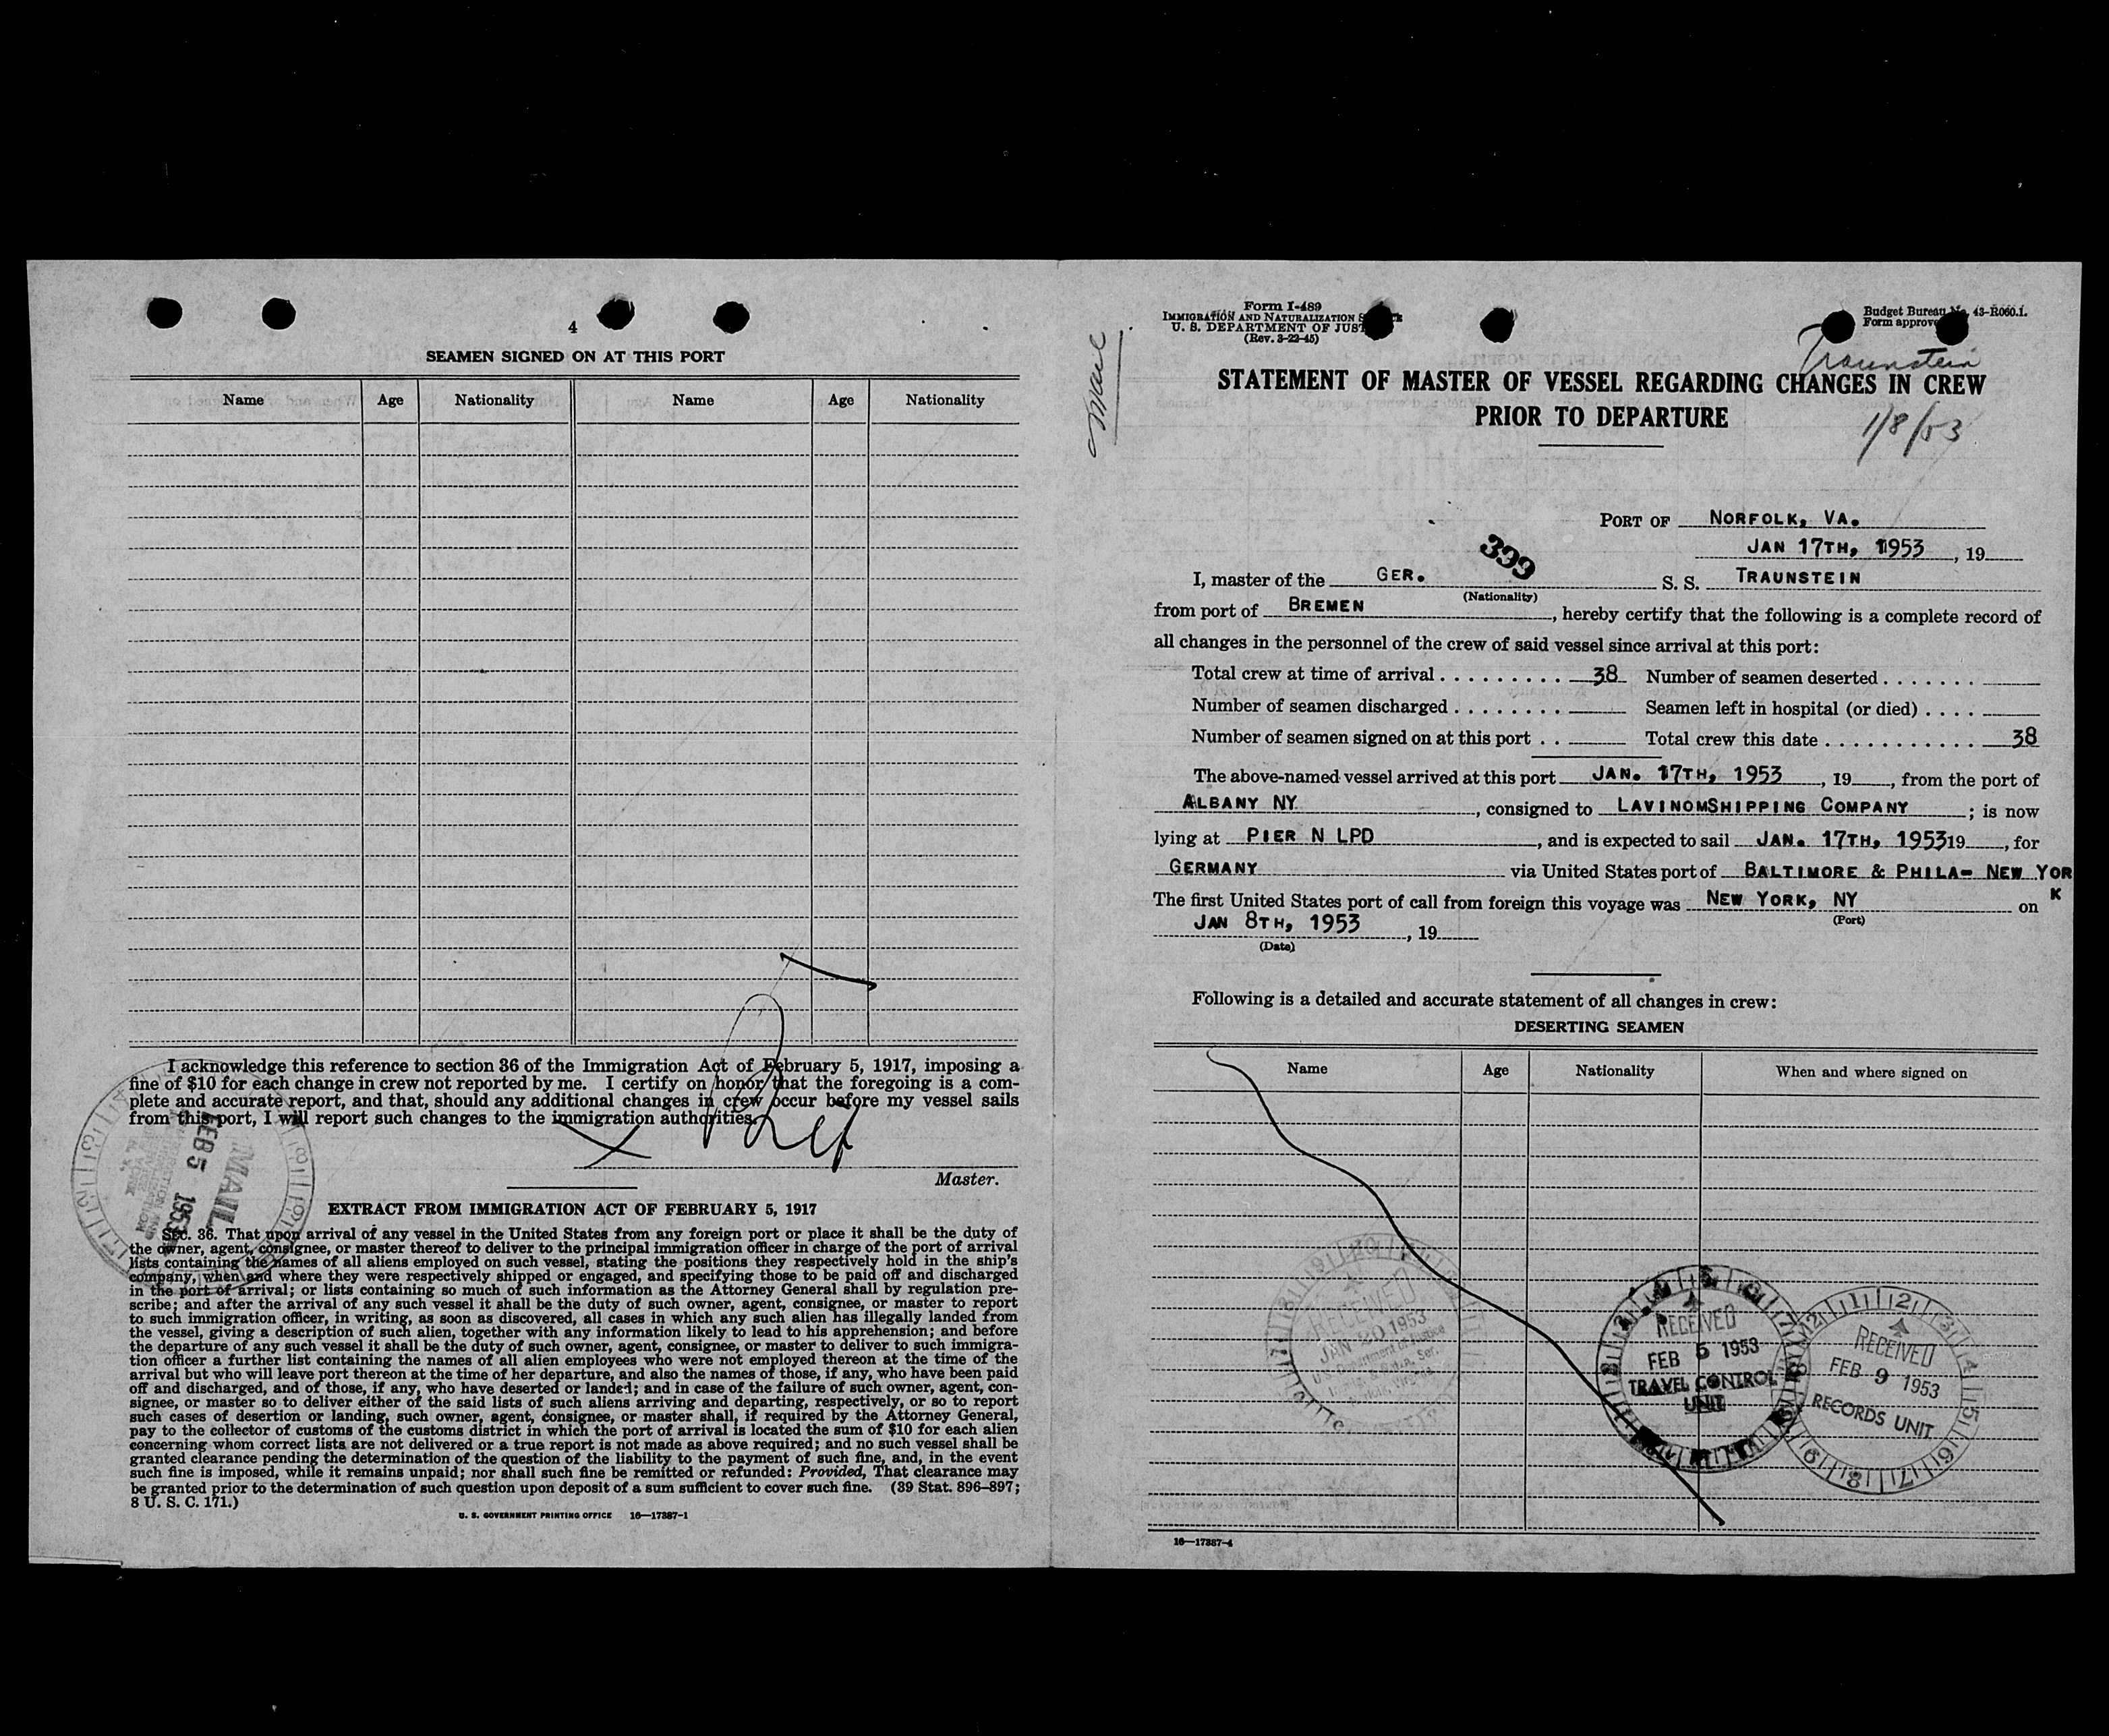 4
SEAMEN SIGNED ON AT THIS PORT
Name Age Nationality Name Age Nationality
I acknowledge this reference to section 36 of the Immigration Act of February 5, 1917, imposing a
fine of $10 for each change in crew not reported by me. I certify on honor that the foregoing is a com-
plete and accurate report, and that, should any additional changes in crew occur before my vessel sails
from this port, I will report such changes to the immigration authorities.
Master.
MAIL
FEB 5 1953
EXTRACT FROM IMMIGRATION ACT OF FEBRUARY 5, 1917
SEC. 36. That upon arrival of any vessel in the United States from any foreign port or place it shall be the duty of
the owner, agent, consignee, or master thereof to deliver to the principal immigration officer in charge of the port of arrival
lists containing the names of all aliens employed on such vessel, stating the positions they respectively hold in the ship's
company, when and where they were respectively shipped or engaged, and specifying those to be paid off and discharged
in the port of arrival; or lists containing so much of such information as the Attorney General shall by regulation pre-
scribe; and after the arrival of any such vessel it shall be the duty of such owner, agent, consignee, or master to report
to such immigration officer, in writing, as soon as discovered, all cases in which any such alien has illegally landed from
the vessel, giving a description of such alien, together with any information likely to lead to his apprehension; and before
the departure of any such vessel it shall be the duty of such owner, agent, consignee, or master to deliver to such immigra-
tion officer a further list containing the names of all alien employees who were not employed thereon at the time of the
arrival but who will leave port thereon at the time of her departure, and also the names of those, if any, who have been paid
off and discharged, and of those, if any, who have deserted or landed; and in case of the failure of such owner, agent, con-
signee, or master so to deliver either of the said lists of such aliens arriving and departing, respectively, or so to report
such cases of desertion or landing, such owner, agent, consignee, or master shall, if required by the Attorney General,
pay to the collector of customs of the customs district in which the port of arrival is located the sum of $10 for each alien
concerning whom correct lists are not delivered or a true report is not made as above required; and no such vessel shall be
granted clearance pending the determination of the question of the liability to the payment of such fine, and, in the event
such fine is imposed, while it remains unpaid; nor shall such fine be remitted or refunded: Provided, That clearance may
be granted prior to the determination of such question upon deposit of a sum sufficient to cover such fine. (39 Stat. 896–897;
8 U. S. C. 171.)
U. S. GOVERNMENT PRINTING OFFICE 16—17387-1
Form I-489
IMMIGRATION AND NATURALIZATION
U. S. DEPARTMENT OF JUST
(Rev. 3-22-45)
Budget Bureau No. 43-R060.1.
Form approve
Traunstein
STATEMENT OF MASTER OF VESSEL REGARDING CHANGES IN CREW
PRIOR TO DEPARTURE
1/8/53
PORT OF NORFOLK, VA.
JAN 17TH, 1953, 19
399
I, master of the GER. S. S. TRAUNSTEIN
(Nationality)
from port of BREMEN, hereby certify that the following is a complete record of
all changes in the personnel of the crew of said vessel since arrival at this port:
Total crew at time of arrival . . . . . . . . . 38 Number of seamen deserted . . . . . . .
Number of seamen discharged . . . . . . . . Seamen left in hospital (or died) . . . .
Number of seamen signed on at this port . . Total crew this date . . . . . . . . . . . 38
The above-named vessel arrived at this port JAN. 17TH, 1953, 19, from the port of
ALBANY NY, consigned to LAVINOMSHIPPING COMPANY; is now
lying at PIER N LPD, and is expected to sail JAN. 17TH, 195319, for
GERMANY via United States port of BALTIMORE & PHILA- NEW YOR
K
The first United States port of call from foreign this voyage was NEW YORK, NY on
(Port)
JAN 8TH, 1953, 19
(Date)
Following is a detailed and accurate statement of all changes in crew:
DESERTING SEAMEN
Name Age Nationality When and where signed on
RECEIVED
JAN 20 1953
RECEIVED
FEB 5 1953
TRAVEL CONTROL
UNIT
RECEIVED
FEB 9 1953
RECORDS UNIT
16—17387-4